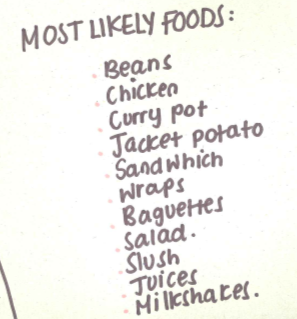 MOST LIKELY FOODS:
Beans
Chicken
Curry pot
Jacket potato
Sandwhich
Wraps
Baguettes
Salad.
Slush
Juices
Milkshakes.